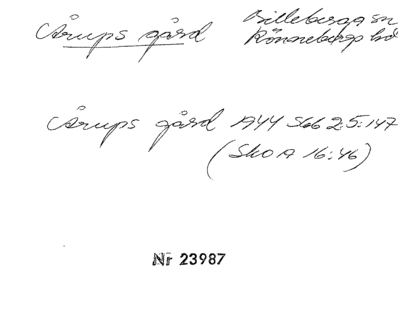 Årups gård Billeberga sn
Rönnebergs hd
Årups gård 1744 SGG 25:147
(SkoA 16:46)
Nr 23987